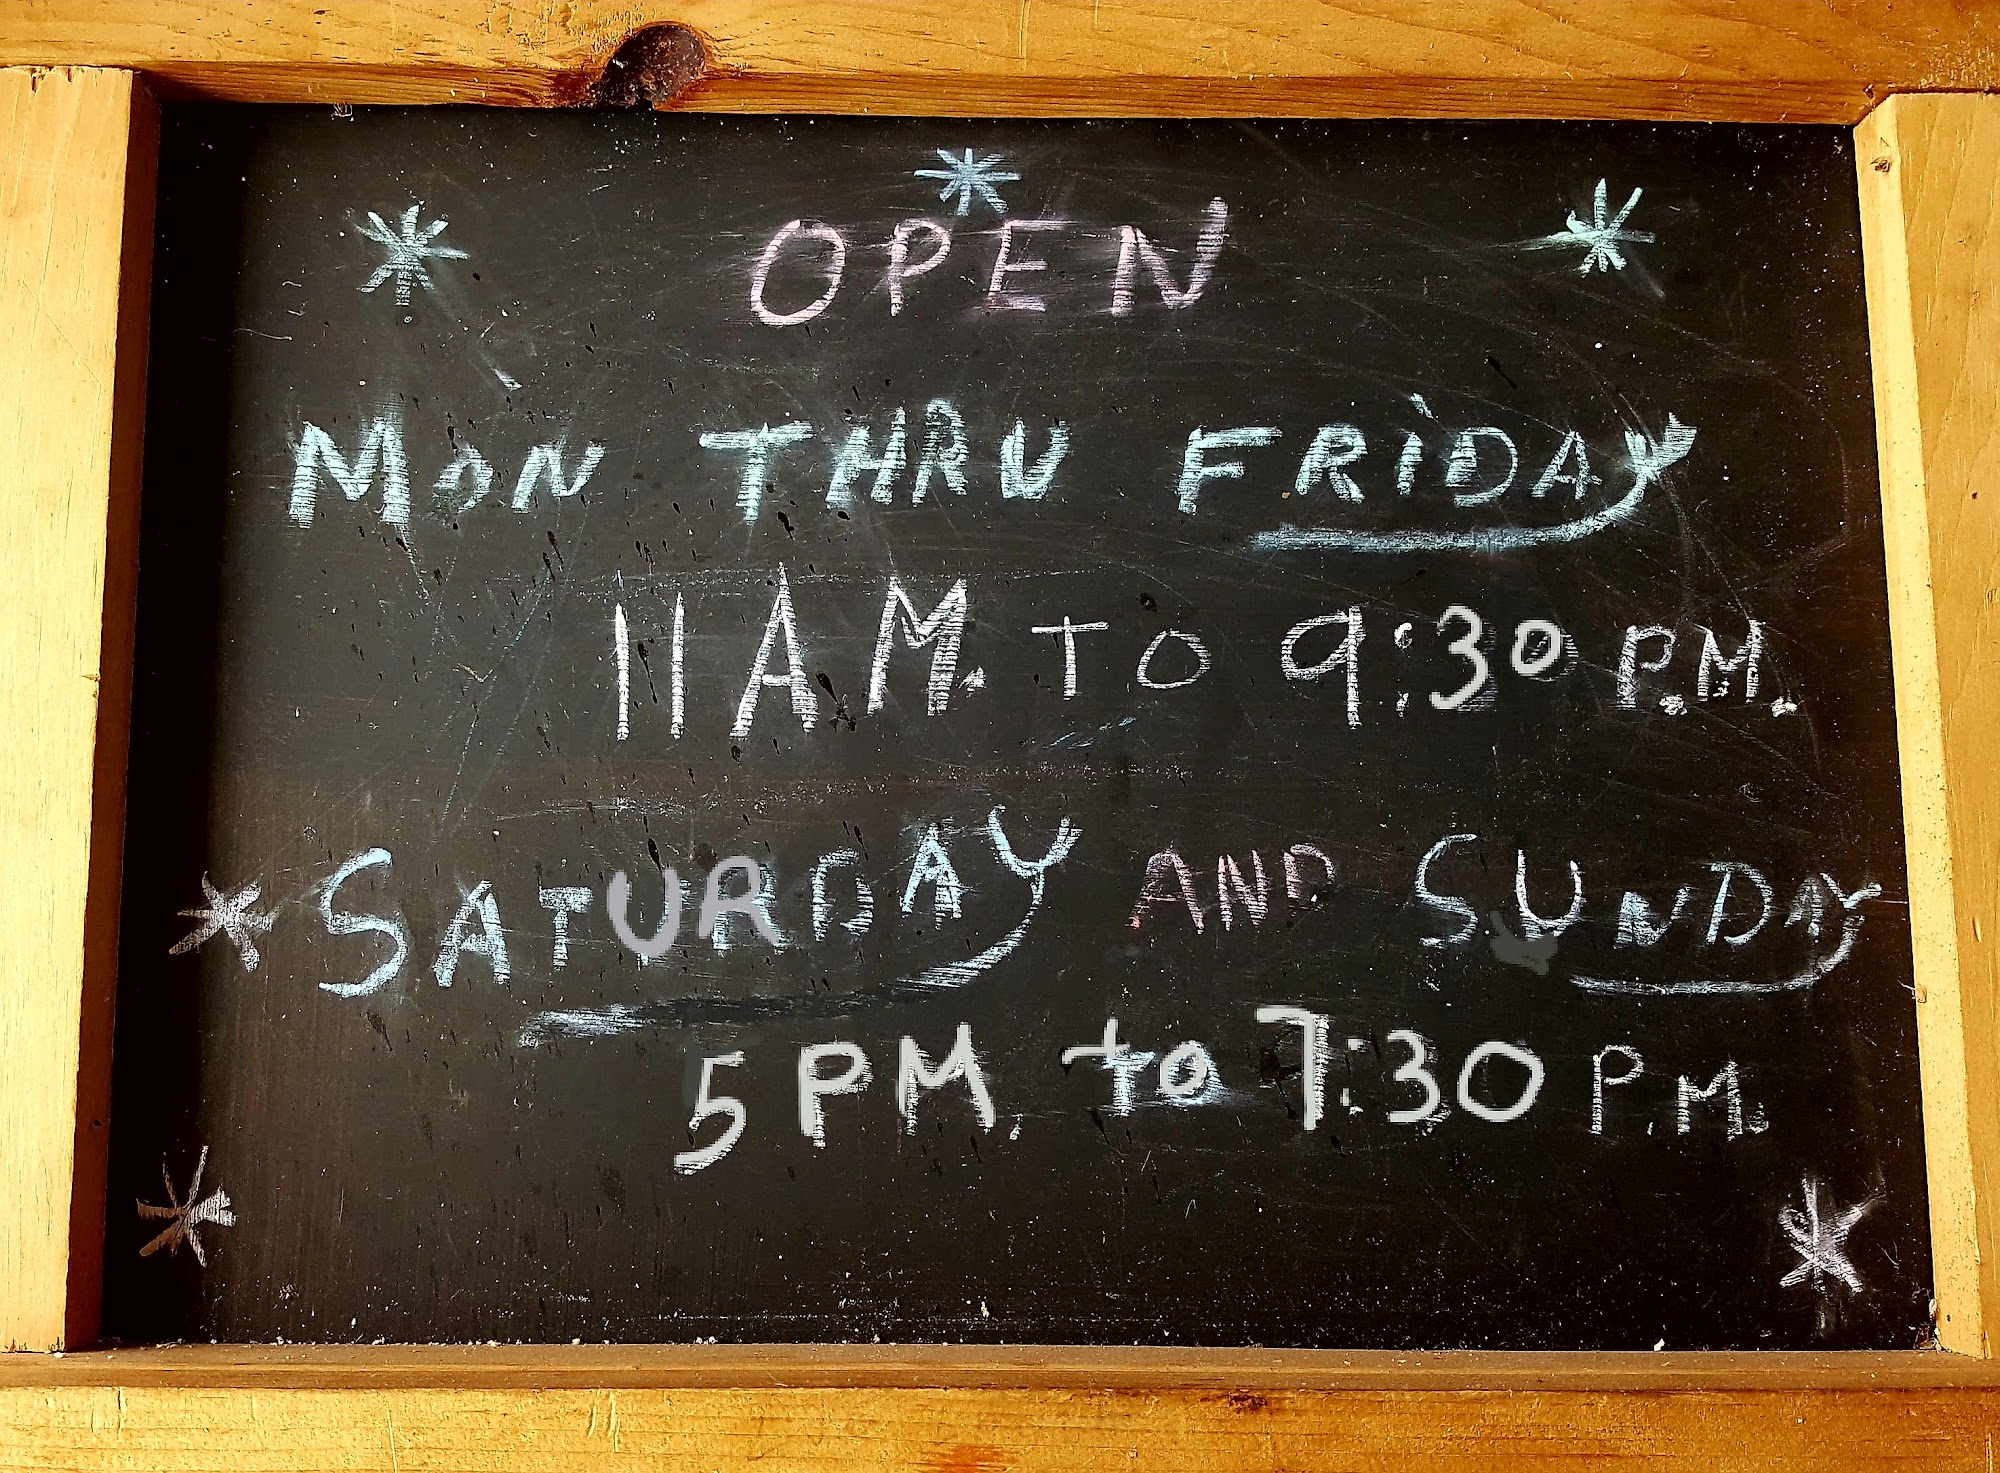 OPEN
MON THRU FRIDAY
11 AM. TO 9:30 P.M.
SATURDAY AND SUNDAY
5 PM. to 7:30 P.M.